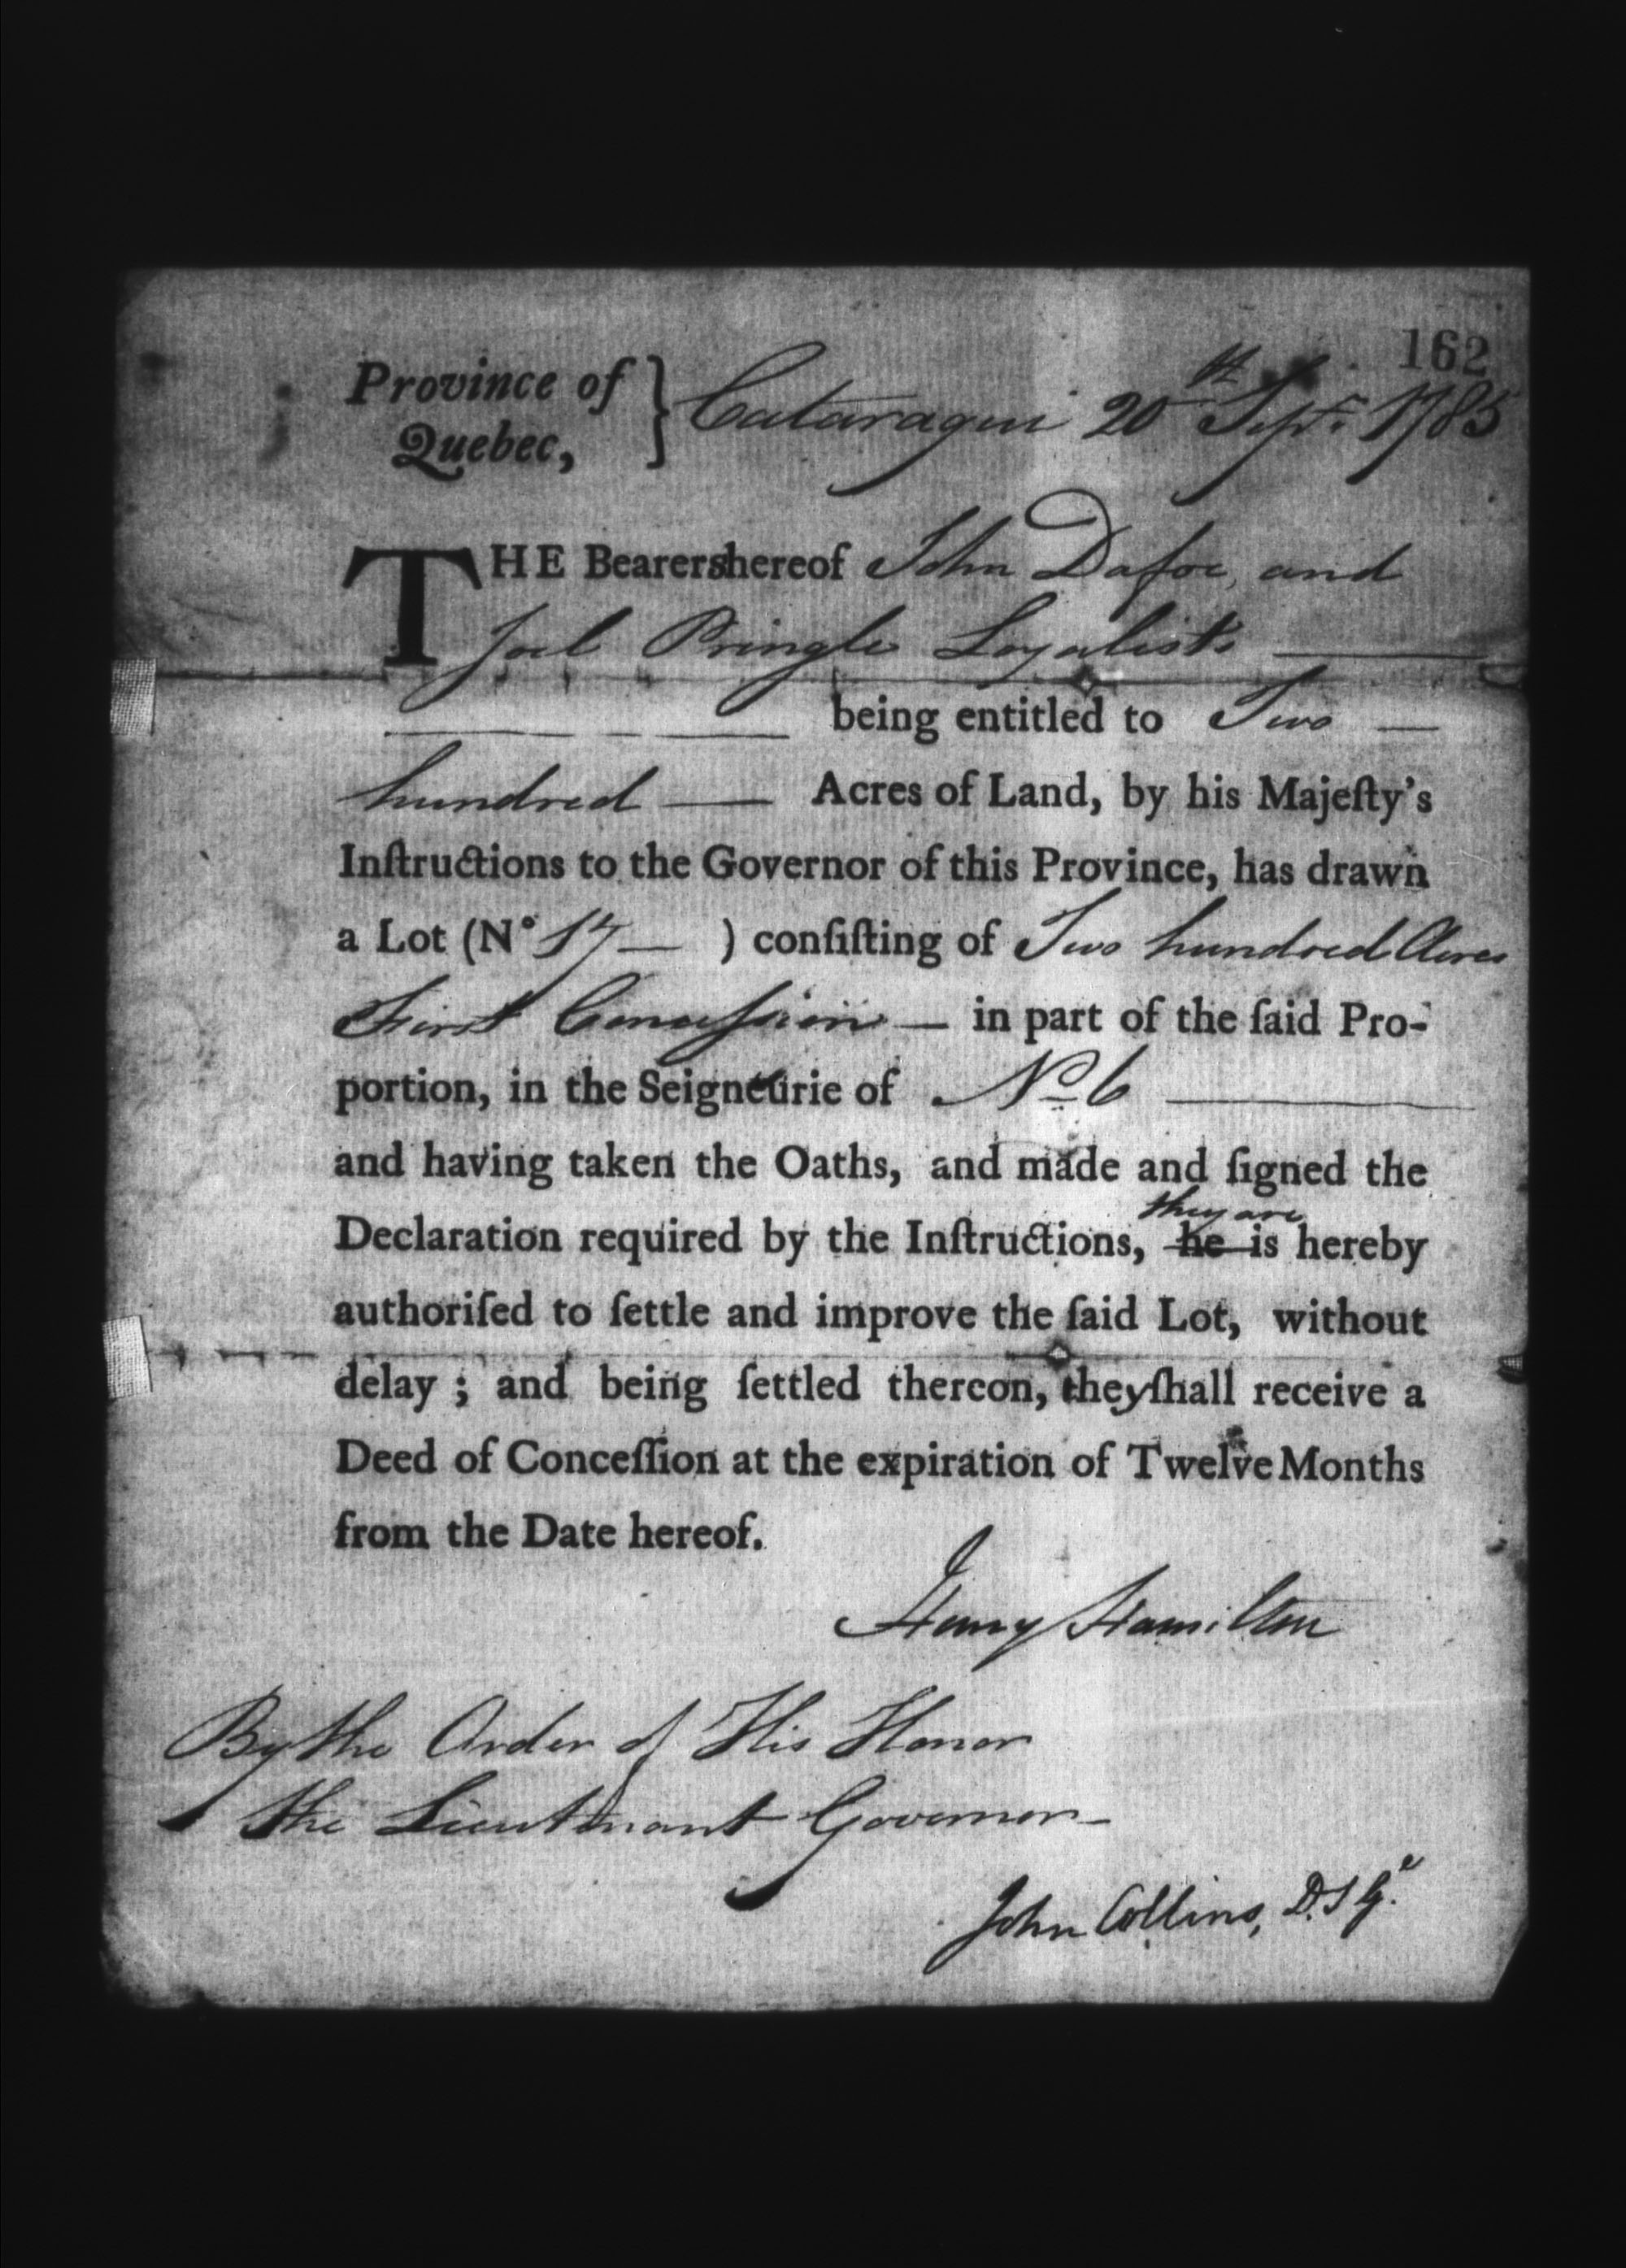 162
Province of Quebec, } Cataraqui 20th Septr. 1785
THE Bearers hereof John Dafoe, and
Joel Pringle Loyalists
being entitled to Two
hundred — Acres of Land, by his Majeſty's
Inſtructions to the Governor of this Province, has drawn
a Lot (No 17 — ) conſiſting of Two hundred Acres
First Conceſsion — in part of the ſaid Pro-
portion, in the Seigneurie of No 6
and having taken the Oaths, and made and ſigned the
they are
Declaration required by the Inſtructions, he is hereby
authoriſed to ſettle and improve the ſaid Lot, without
delay ; and being ſettled thereon, they ſhall receive a
Deed of Conceſſion at the expiration of Twelve Months
from the Date hereof.
Henry Hamilton
By the Order of His Honor
the Lieutenant Governor—
John Collins, D.S.G.